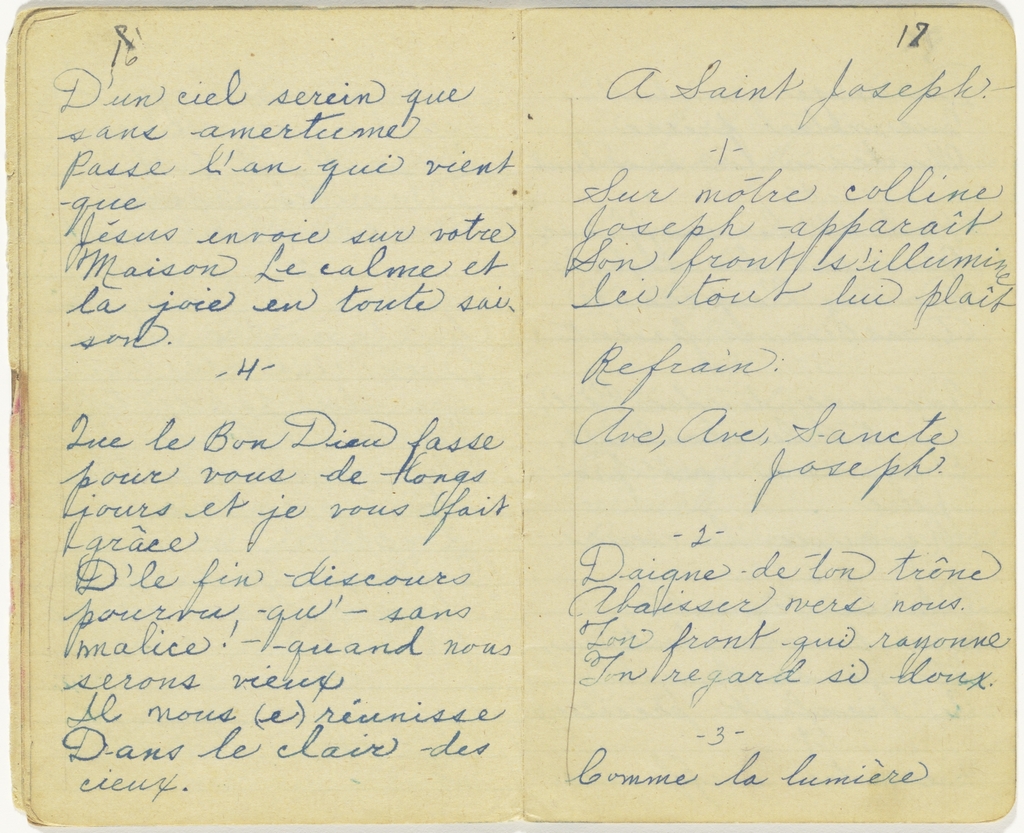 16
D'un ciel serein que
sans amertume
Passe l'an qui vient
que
Jésus envoie sur votre
Maison Le calme et
la joie en toute sai-
son.
-4-
Que le Bon Dieu fasse
pour vous de longs
jours et je vous fait
grâce
D'le fin discours
pourvu, qu'- sans
malice! - quand nous
serons vieux
Il nous (e) réunisse
Dans le clair des
cieux.
17
A Saint Joseph.
-1-
Sur nôtre colline
Joseph apparaît
Son front s'illumine
Ici tout lui plaît
Refrain:
Ave, Ave, Sancte
Joseph.
-2-
Daigne de ton trône
Abaisser vers nous.
Ton front qui rayonne
Ton regard si doux.
-3-
Comme la lumière